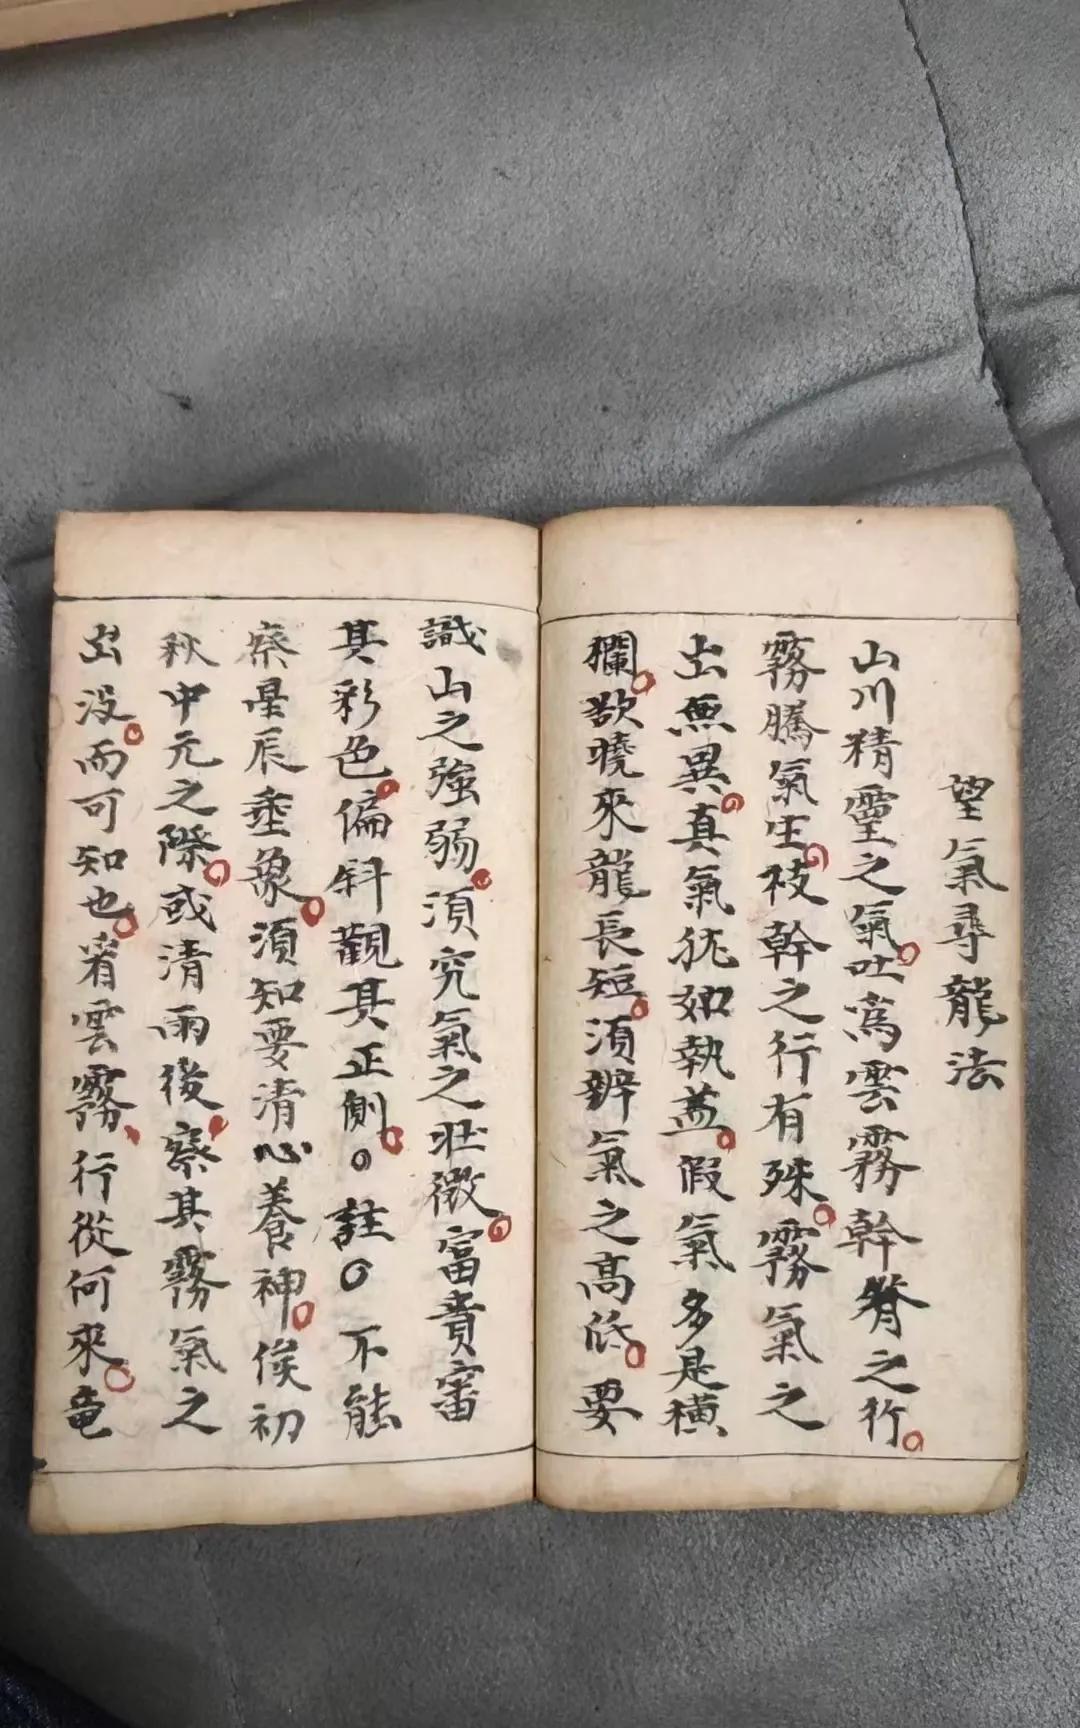 望氣尋龍法
山川精靈之氣。吐為雲霧幹脊之行。
霧騰氣生。枝幹之行有殊。霧氣之
出無異。真氣犹如執蓋。假氣多是橫
欄。欲曉來龍長短。須辨氣之高低。要
識山之強弱。須究氣之壯微。富貴審
其彩色。偏斜觀其正側。〇註〇不能
察星辰垂象。須知要清心養神。俟初
秋中元之際。或清雨後、察其霧氣之
出没。而可知也。看雲霧、行從何來。竜